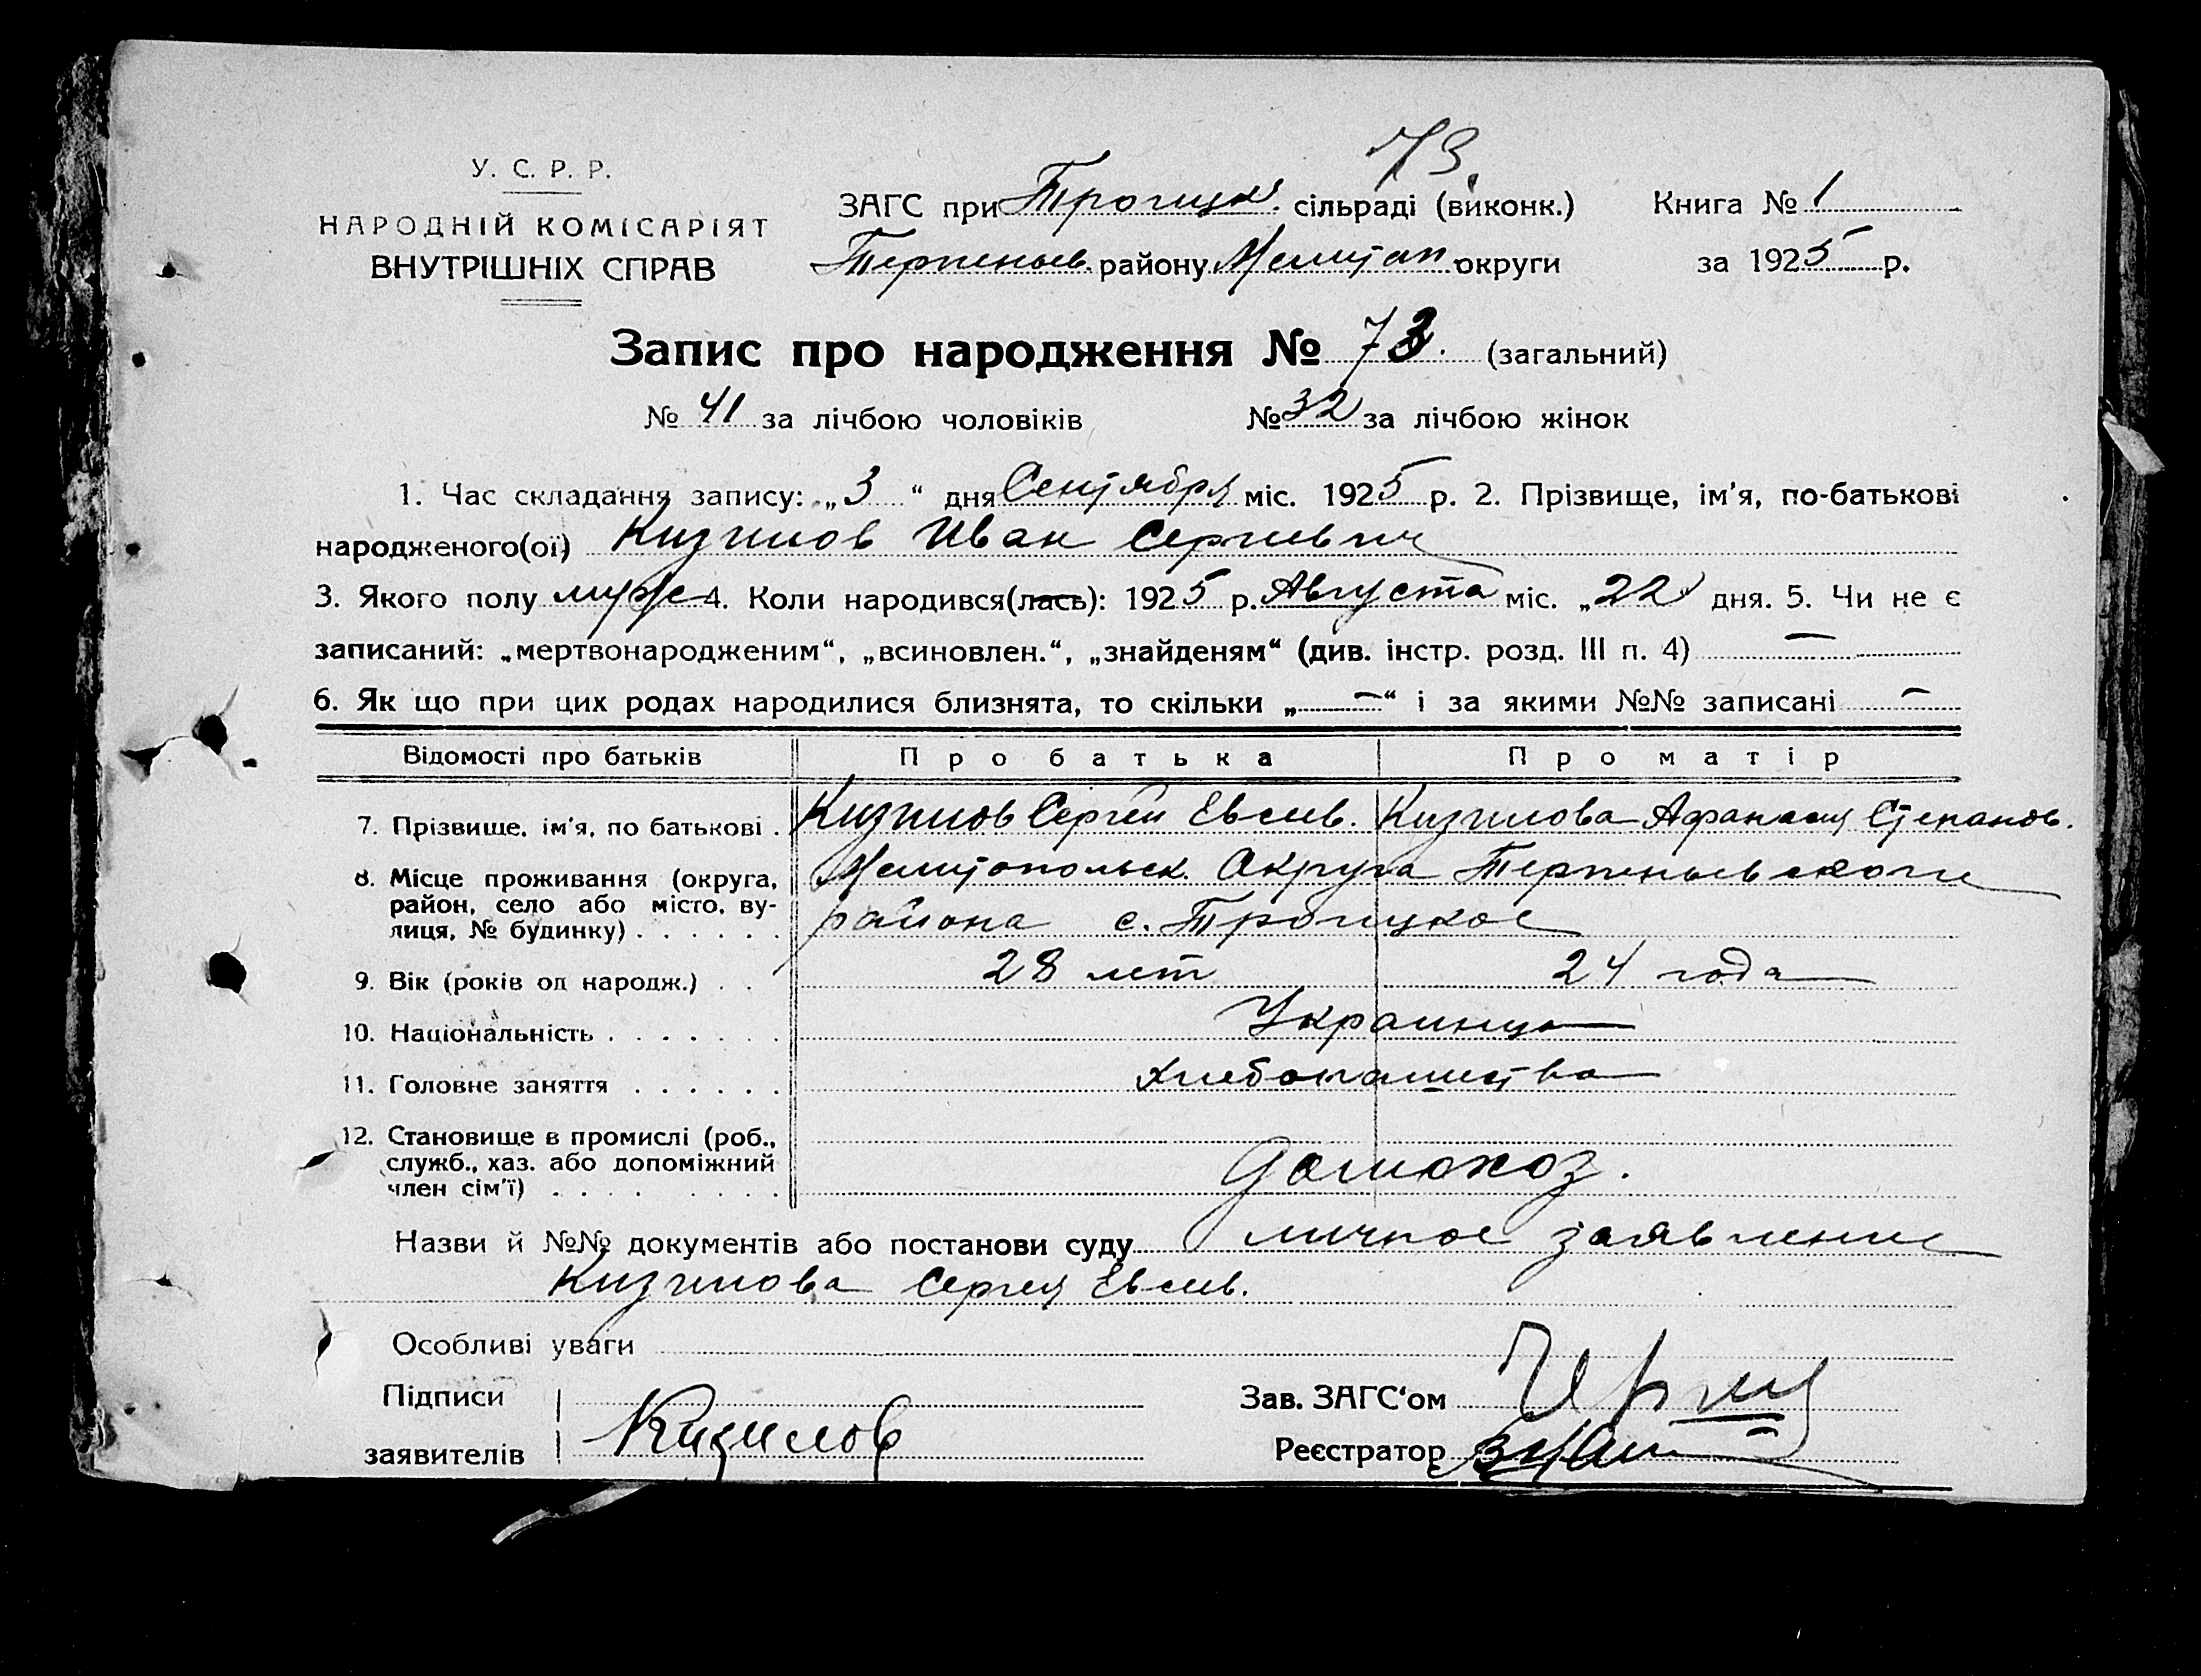 73.
У. С. Р. Р.
НАРОДНІЙ КОМІСАРІЯТ
ВНУТРІШНІХ СПРАВ
ЗАГС при Троицк. сільраді (виконк.)
Терпеньев. району Мелитоп. округи
Книга № 1
за 1925 р.
Запис про народження № 73. (загальний)
№ 41 за лічбою чоловіків № 32 за лічбою жінок
1. Час складання запису: „3“ дня Сентября міс. 1925 р. 2. Прізвище, ім'я, по-батькові
народженого(ої) Кизилов Иван Сергиевич
3. Якого полу муж 4. Коли народився(лась): 1925 р. Августа міс. „22 дня. 5. Чи не є
записаний: „мертвонародженим“, „всиновлен.“, „знайденям“ (див. інстр. розд. III п. 4) —
6. Як що при цих родах народилися близнята, то скільки „—“ і за якими №№ записані —
Відомості про батьків Про батька Про матір
7. Прізвище, ім'я, по батькові . Кизилов Сергей Евсев. Кизилова Афанасия Степанов.
8. Місце проживання (округа, Мелитопольск. Округа Терпеньевского
район, село або місто, ву- района с. Троицкое
лиця, № будинку) . . . . . .
9. Вік (років од народж.) . . 28 лет 24 года
10. Національність . . . . . . . Украинцы
11. Головне заняття . . . . . . хлебопашество
12. Становище в промислі (роб.,
служб., хаз. або допоміжний домохоз.
член сім'ї) . . . . . . . . .
Назви й №№ документів або постанови суду личное заявление
Кизилова Сергея Евсев.
Особливі уваги
Підписи
заявителів Кизилов
Зав. ЗАГС'ом
Реєстратор